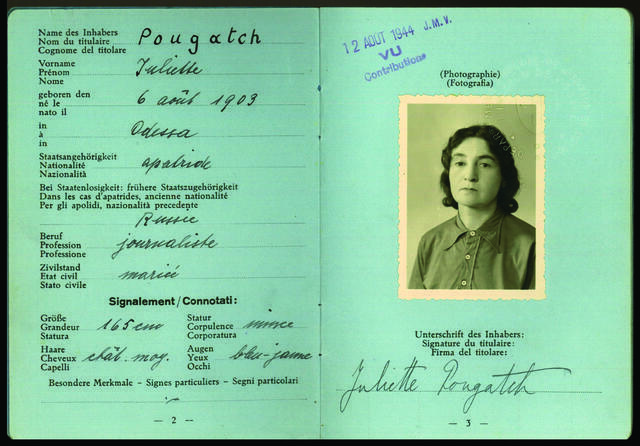 Name des Inhabers
Nom du titulaire
Cognome del titolare
Pougatch
Vorname
Prénom
Nome
Juliette
geboren den
né le
nato il
6 août 1903
in
à
in
Odessa
Staatsangehörigkeit
Nationalité
Nazionalità
apatride
Bei Staatenlosigkeit: frühere Staatszugehörigkeit
Dans les cas d'apatrides, ancienne nationalité
Per gli apolidi, nazionalità precedente
Russie
Beruf
Profession
Professione
journaliste
Zivilstand
Etat civil
Stato civile
mariée
Signalement/Connotati:
Größe
Grandeur
Statura
165 cm
Statur
Corpulence
Corporatura
mince
Haare
Cheveux
Capelli
chât. moy.
Augen
Yeux
Occhi
bleu-jaune
Besondere Merkmale - Signes particuliers - Segni particolari
— 2 —
12 AOUT 1944 J.M.V.
VU
Contributions
(Photographie)
(Fotografia)
Unterschrift des Inhabers:
Signature du titulaire:
Firma del titolare:
Juliette Pougatch
— 3 —